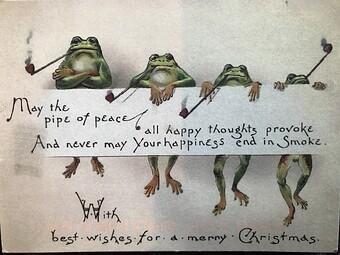 May the
pipe of peace
all happy thoughts provoke
And never may Your happiness end in Smoke.
With
best · wishes · for · a · merry · Christmas.